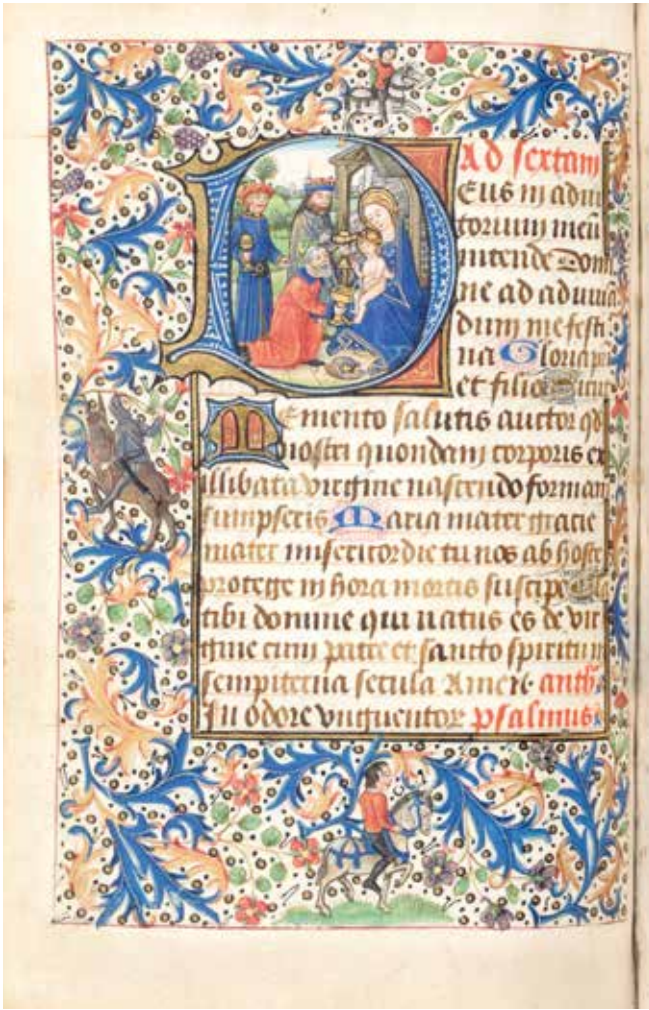 Ad sextam
Eus in adiu
torium meū
intende Domi
ne ad adiuuā
dum me festi
na Gloria pri
et filio Sicut
Memento salutis auctor qd
nostri quondam corporis ex
illibata virgine nascendo formam
sumpseris Maria mater gracie
mater misericordie tu nos ab hoste
protege in hora mortis suscipe Gla
tibi domine qui natus es de vir
gine cum patre et sancto spiritu in
sempiterna secula Amen. anth
In odore vnguentor psalmus